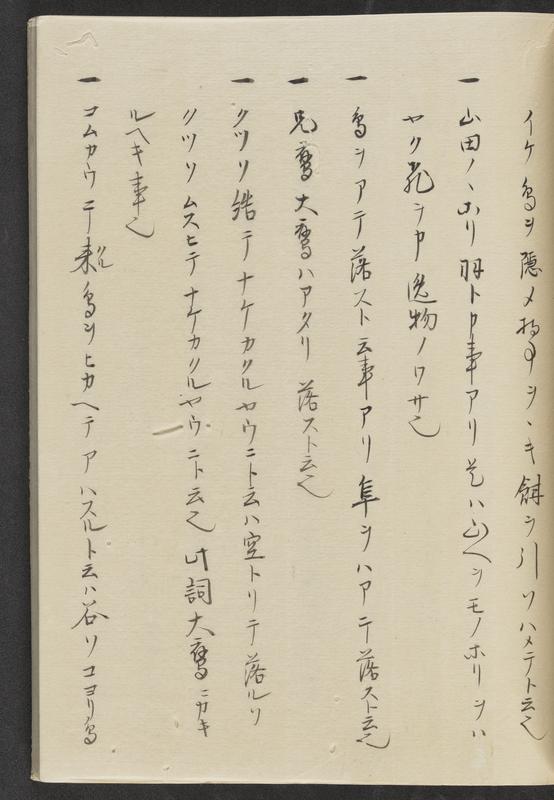 イケ鳥ヲ隠メ持事ヲヽキ餌ヲ引ソハメテト云也
一 山田ノヽホリ羽ト申事アリ是ハ山ヘヲモノホリヲハ
ヤク飛ヲ申逸物ノワサ也
一 鳥ヲアテ落スト云事アリ隼ヲハアテ落スト云也
一 兄鷹大鷹ハアタリ落スト云也
一 クツリ結テナケカクルヤウニト云ハ空トリテ落ルソ
クツリムスヒテナケカクルヤウニト云也此詞大鷹ニカキ
ルヘキ事也
一 コムカウニテ来ル鳥ヲヒカヘテアハスルト云ハ谷ソコヨリ鳥